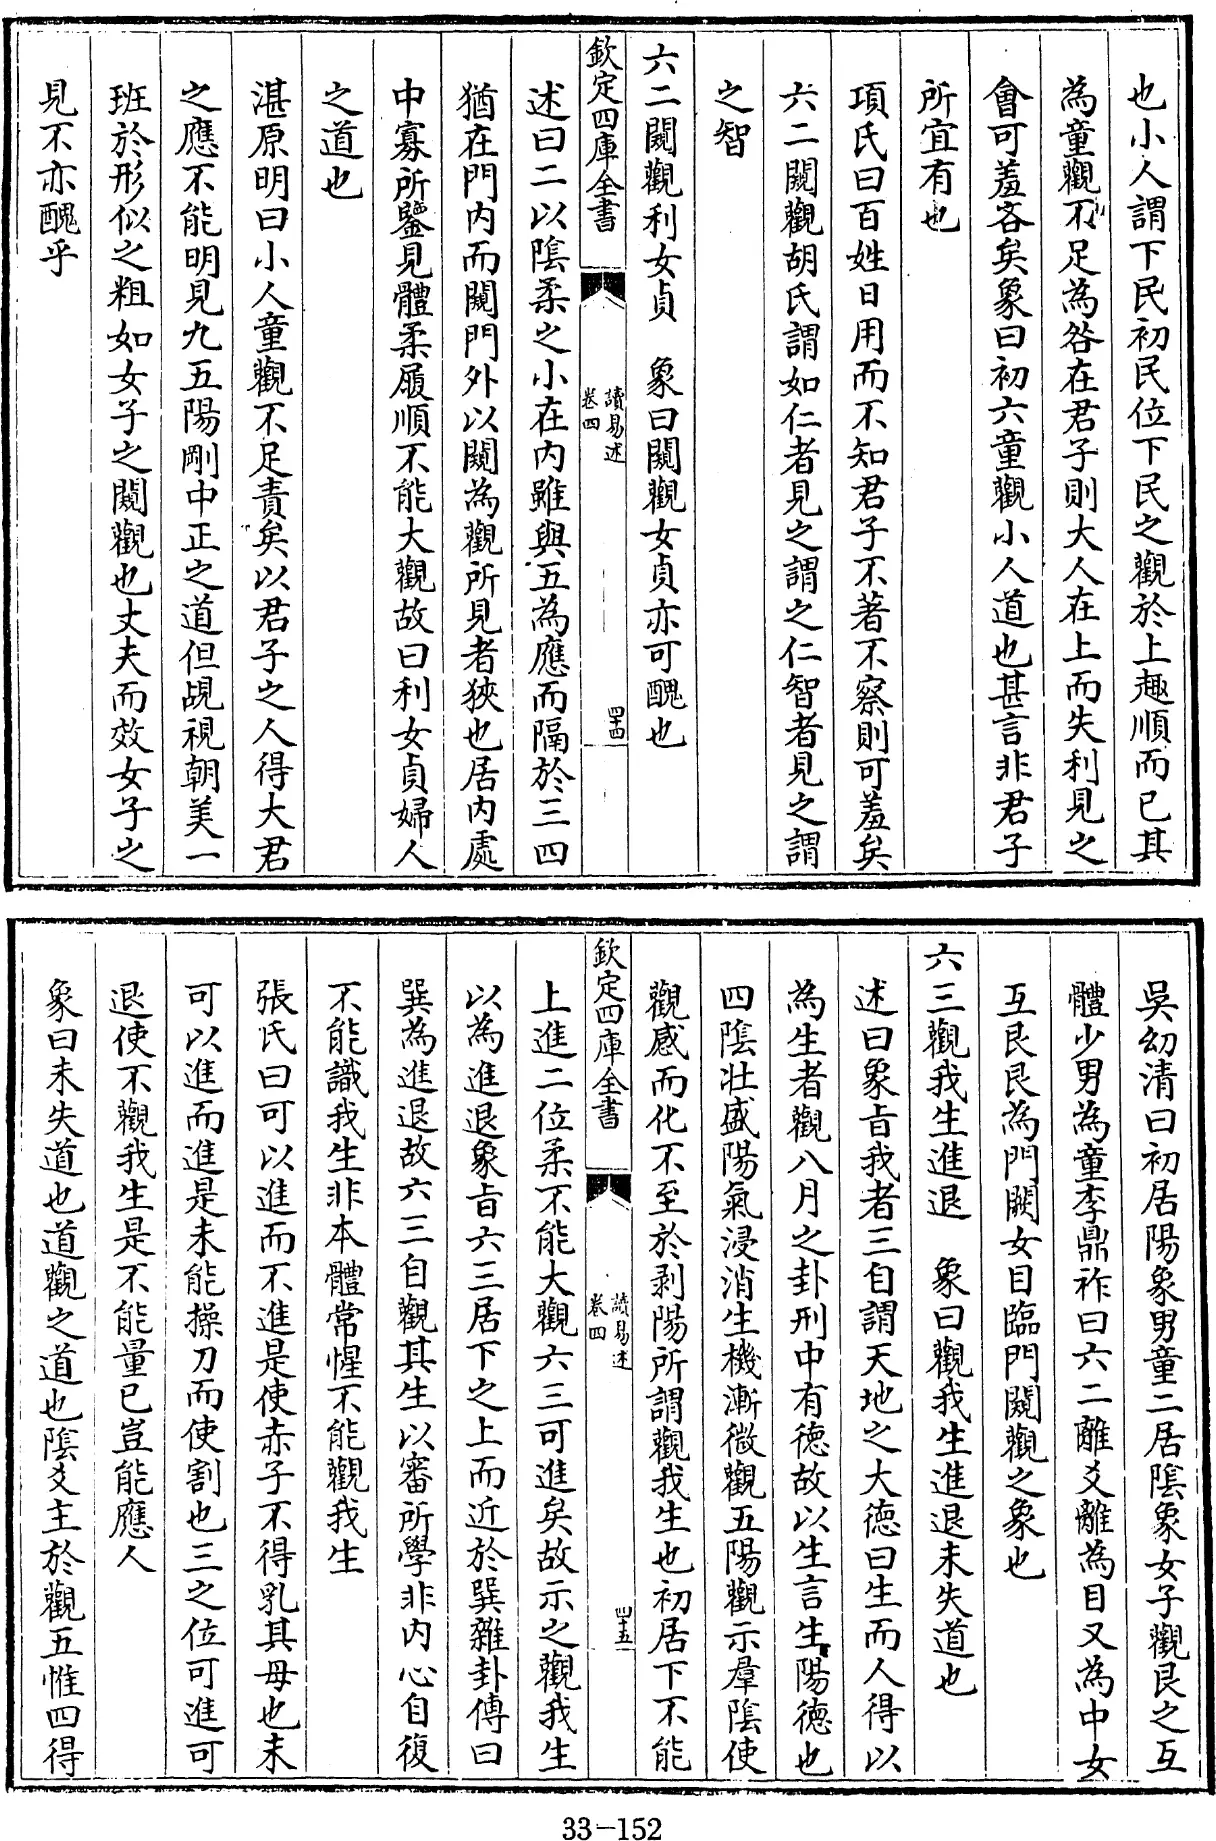 也小人謂下民初民位下民之觀於上趣順而已其
為童觀不足為咎在君子則大人在上而失利見之
會可羞吝矣象曰初六童觀小人道也甚言非君子
所宜有也
項氏曰百姓日用而不知君子不著不察則可羞矣
六二闚觀胡氏謂如仁者見之謂之仁智者見之謂
之智
六二闚觀利女貞　象曰闚觀女貞亦可醜也
欽定四庫全書
讀易述
卷四
四十四
述曰二以陰柔之小在內雖與五為應而隔於三四
猶在門內而闚門外以闚為觀所見者狹也居內處
中寡所鑒見體柔履順不能大觀故曰利女貞婦人
之道也
湛原明曰小人童觀不足責矣以君子之人得大君
之應不能明見九五陽剛中正之道但覘視朝美一
班於形似之粗如女子之闚觀也丈夫而效女子之
見不亦醜乎
吳幼清曰初居陽象男童二居陰象女子觀艮之互
體少男為童李鼎祚曰六二離爻離為目又為中女
互艮艮為門闕女目臨門闚觀之象也
六三觀我生進退　象曰觀我生進退未失道也
述曰象旨我者三自謂天地之大德曰生而人得以
為生者觀八月之卦刑中有德故以生言生陽德也
四陰壯盛陽氣浸消生機漸微觀五陽觀示羣陰使
觀感而化不至於剥陽所謂觀我生也初居下不能
欽定四庫全書
讀易述
卷四
四十五
上進二位柔不能大觀六三可進矣故示之觀我生
以為進退象旨六三居下之上而近於巽雜卦傳曰
巽為進退故六三自觀其生以審所學非內心自復
不能識我生非本體常惺不能觀我生
張氏曰可以進而不進是使赤子不得乳其母也未
可以進而進是未能操刀而使割也三之位可進可
退使不觀我生是不能量已豈能應人
象曰未失道也道觀之道也陰爻主於觀五惟四得
33-152